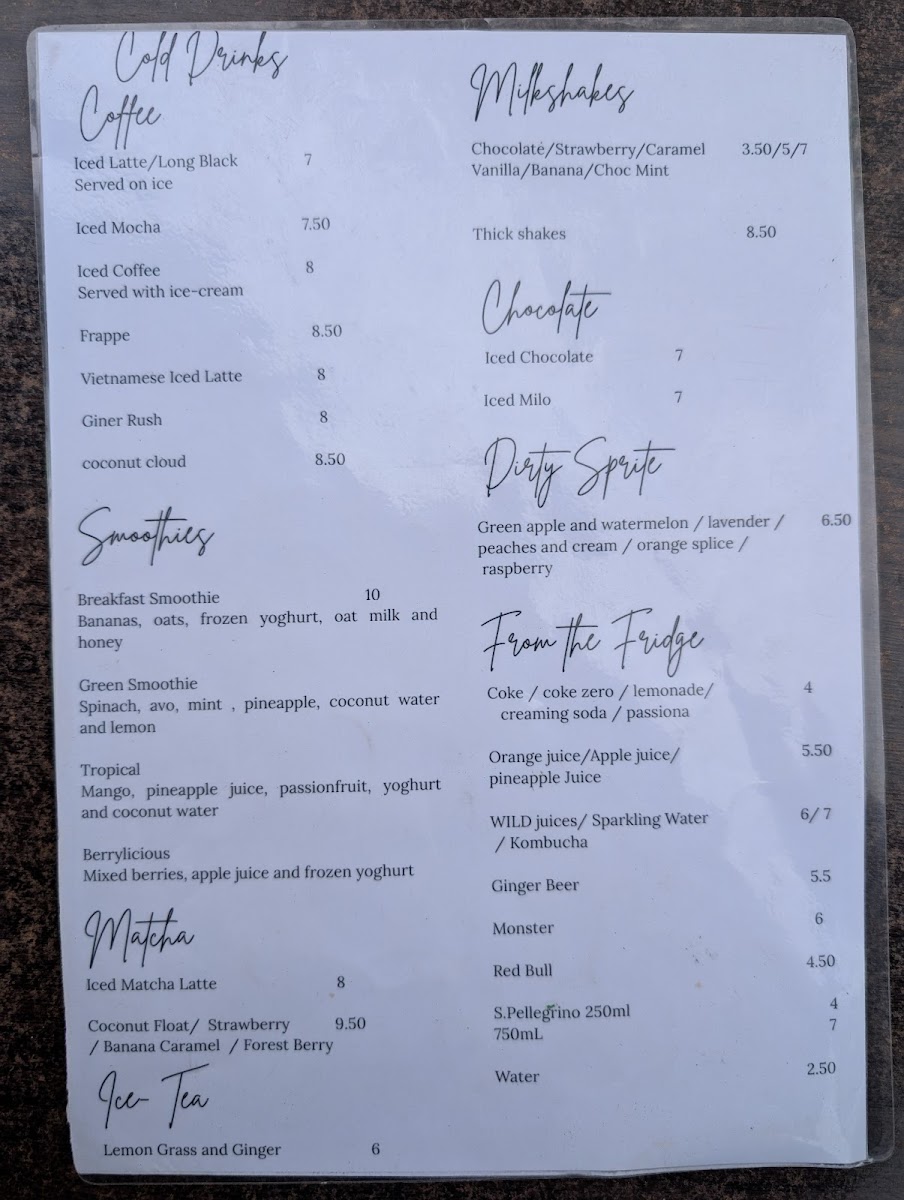 Cold Drinks
Coffee
Iced Latte/Long Black 7
Served on ice
Iced Mocha 7.50
Iced Coffee 8
Served with ice-cream
Frappe 8.50
Vietnamese Iced Latte 8
Giner Rush 8
coconut cloud 8.50
Smoothies
Breakfast Smoothie 10
Bananas, oats, frozen yoghurt, oat milk and
honey
Green Smoothie
Spinach, avo, mint , pineapple, coconut water
and lemon
Tropical
Mango, pineapple juice, passionfruit, yoghurt
and coconut water
Berrylicious
Mixed berries, apple juice and frozen yoghurt
Matcha
Iced Matcha Latte 8
Coconut Float/ Strawberry 9.50
/ Banana Caramel / Forest Berry
Ice- Tea
Lemon Grass and Ginger 6
Milkshakes
Chocolate/Strawberry/Caramel 3.50/5/7
Vanilla/Banana/Choc Mint
Thick shakes 8.50
Chocolate
Iced Chocolate 7
Iced Milo 7
Dirty Sprite
Green apple and watermelon / lavender / 6.50
peaches and cream / orange splice /
raspberry
From the Fridge
Coke / coke zero / lemonade/ 4
creaming soda / passiona
Orange juice/Apple juice/ 5.50
pineapple Juice
WILD juices/ Sparkling Water 6/ 7
/ Kombucha
Ginger Beer 5.5
Monster 6
Red Bull 4.50
S.Pellegrino 250ml 4
750mL 7
Water 2.50